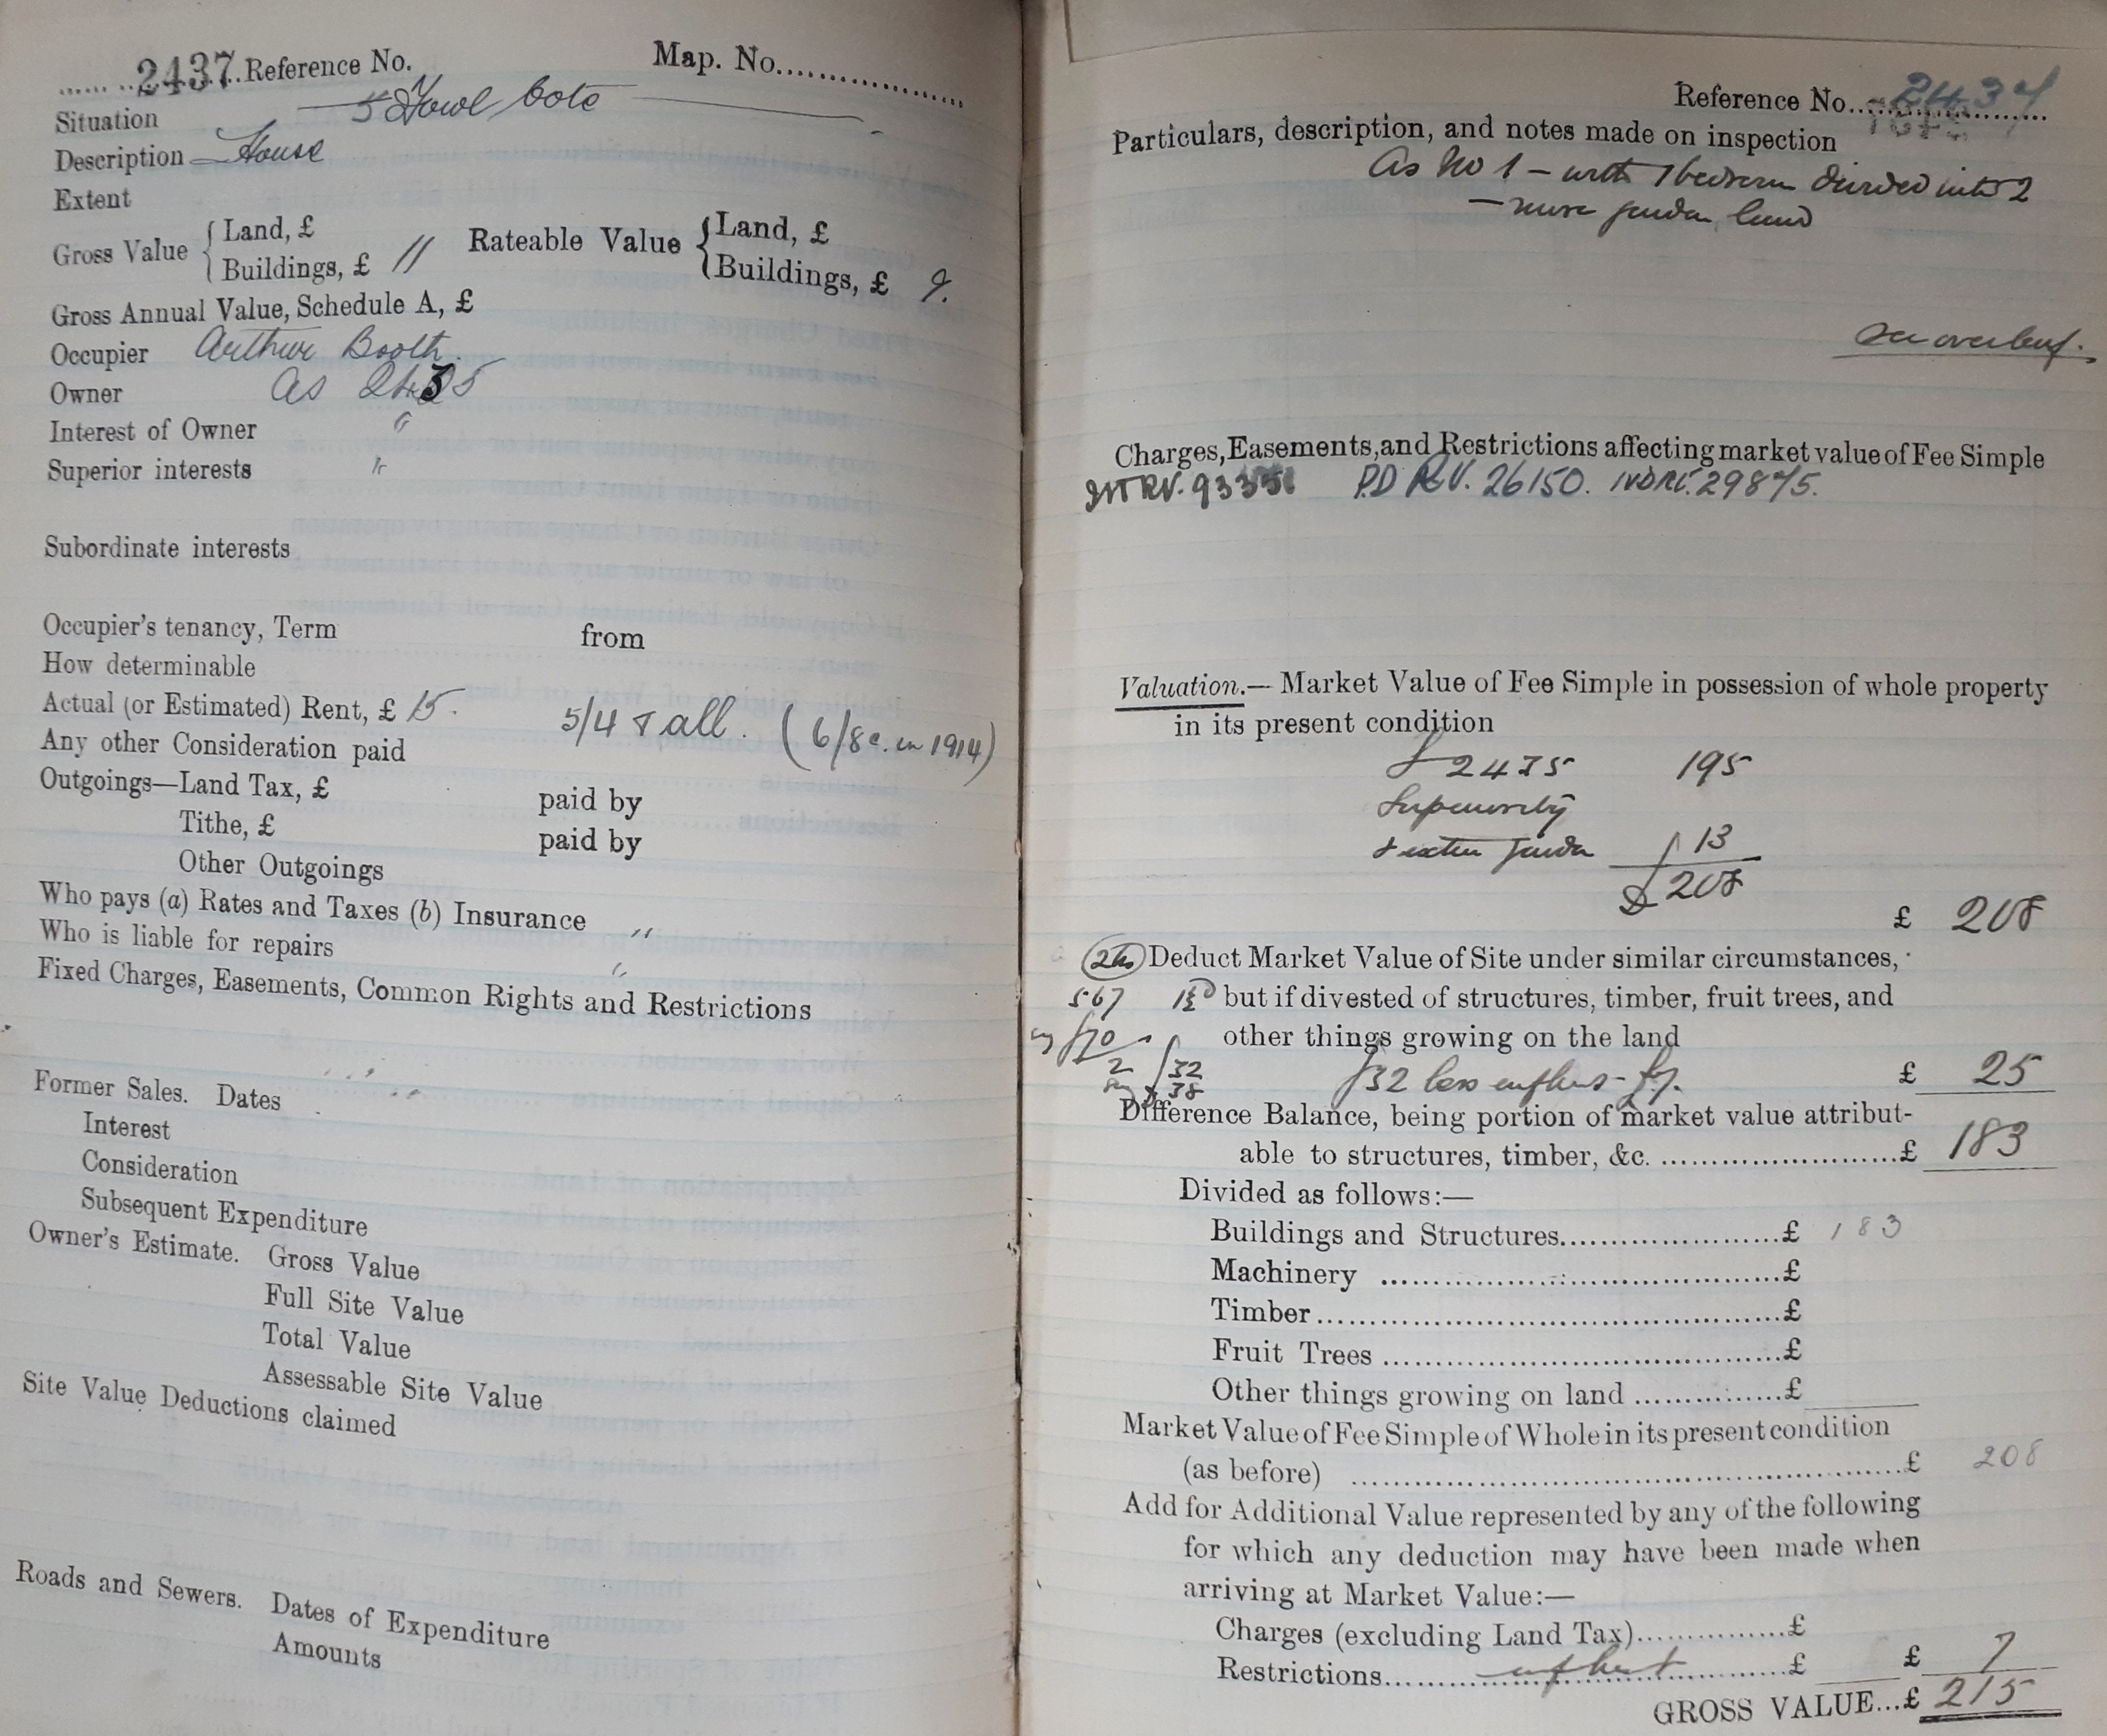 2437. Reference No. Map. No.
Situation 5 Fowl Cote
Description House
Extent
Gross Value { Land, £
Buildings, £ 11
Rateable Value { Land, £
Buildings, £ 9.
Gross Annual Value, Schedule A, £
Occupier Arthur Booth.
Owner as 2435
Interest of Owner "
Superior interests "
Subordinate interests
Occupier's tenancy, Term from
How determinable
Actual (or Estimated) Rent, £ 15. 5/4 & all. (6/8 in 1914)
Any other Consideration paid
Outgoings—Land Tax, £ paid by
Tithe, £ paid by
Other Outgoings
Who pays (a) Rates and Taxes (b) Insurance "
Who is liable for repairs "
Fixed Charges, Easements, Common Rights and Restrictions
Former Sales. Dates
Interest
Consideration
Subsequent Expenditure
Owner's Estimate. Gross Value
Full Site Value
Total Value
Assessable Site Value
Site Value Deductions claimed
Roads and Sewers. Dates of Expenditure
Amounts
Reference No. 2437
Particulars, description, and notes made on inspection
As No 1 – with 1 bedroom divided into 2
– more garden land
See overleaf.
Charges, Easements, and Restrictions affecting market value of Fee Simple
INT RV. 93351 P.D RV. 26150. IVDRL. 29875.
Valuation.— Market Value of Fee Simple in possession of whole property
in its present condition
2435 195
Superiority
& extra garden 13
£ 208
£ 208
Deduct Market Value of Site under similar circumstances,
567 1½D but if divested of structures, timber, fruit trees, and
£70 other things growing on the land
2 £32
£38 £32 less enfhus - £7. £ 25
Difference Balance, being portion of market value attribut-
able to structures, timber, &c. £ 183
Divided as follows:—
Buildings and Structures £ 183
Machinery £
Timber £
Fruit Trees £
Other things growing on land £
Market Value of Fee Simple of Whole in its present condition
(as before) £ 208
Add for Additional Value represented by any of the following
for which any deduction may have been made when
arriving at Market Value:—
Charges (excluding Land Tax) £
Restrictions £ £ 7
GROSS VALUE...£ 215